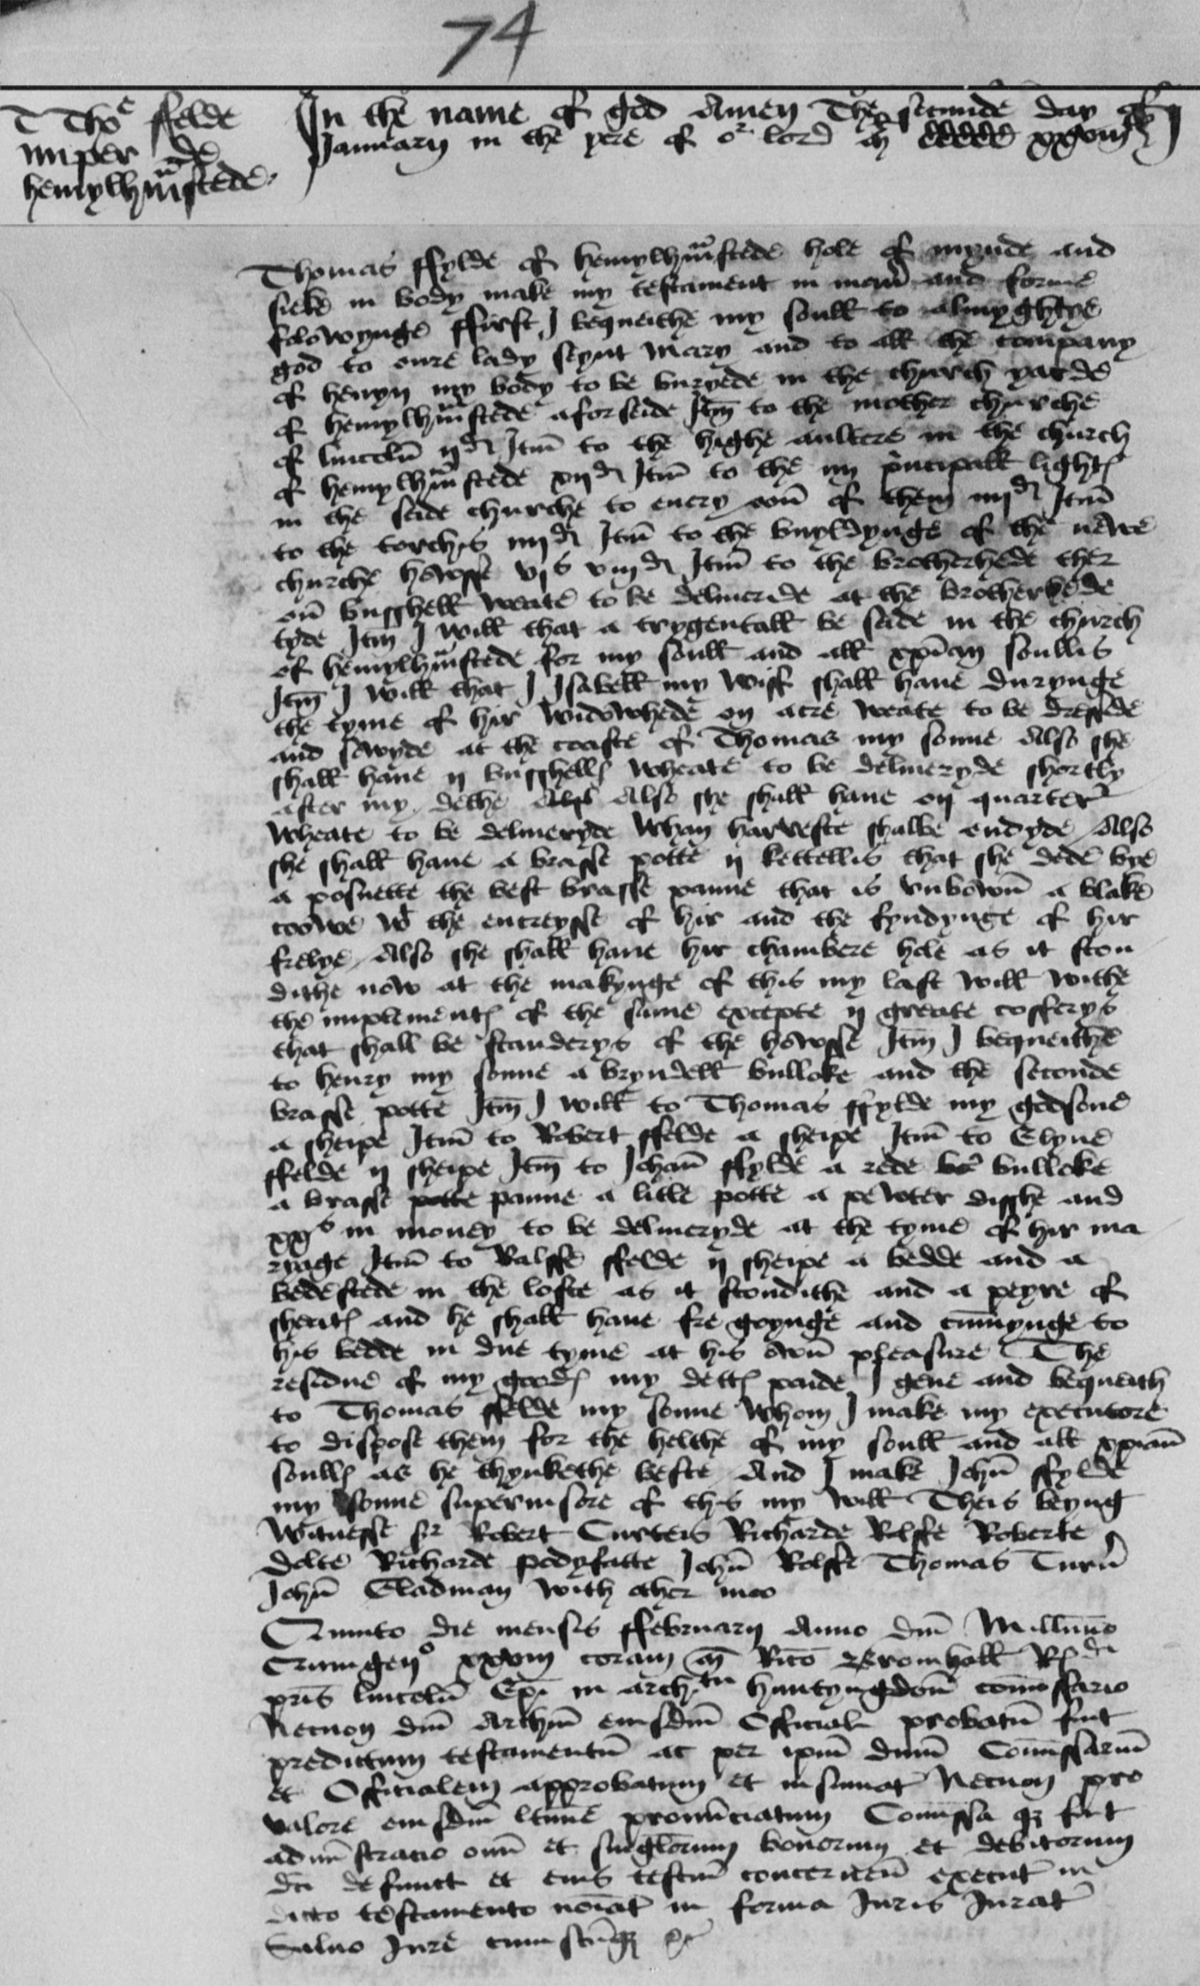 74
T Tho^e ffelde
nuper de
hemylhm̃stede
In the name of god Amen The secunde day of
January in the yere of o^r lord m ccccc xxviij I
Thomas ffylde of hemylhm̃stede hole of mynde and
sicke in body make my testament in maner and forme
folowynge ffirst I bequeithe my soull to almyghtye
god to oure lady seynt Mary and to all the company
of hevyn my body to be buryede in the church yarde
of hemylhm̃stede aforseide Itm̃ to the mother churche
of lincoln̄ ij d Itm̃ to the highe aultere in the church
of hemylhm̃stede xij d Itm̃ to the iiij principall light
in the seide churche to every oon̄ of them iiij d Itm̃
to the torchis iiij d Itm̃ to the buyldynge of the newe
churche howsse vj s viij d Itm̃ to the brotherhede ther
on̄ busshell weate to be deliveride at the brotherhede
tyde Itm̃ I will that a trygentall be seide in the church
of hemylhm̃stede for my soull and all xpian soullis
Itm̃ I will that I Isabell my wiff shall have durynge
the tyme of hir widowhede on acre weate to be dressede
and sowyde at the coaste of Thomas my sonne Also she
shall have ij busshell wheate to be delyveryde shortly
after my dethe Also Also she shall have on quarter
wheate to be delyveryde whan harveste shalbe endyde Also
she shall have a brasse potte ij kettellis that she dede bye
a posnette the best brasse panne that is unbown̄ a blake
coowe w^t the encreysse of hir and the fyndynge of hir
frelye Also she shall have hir chambere hole as it ston
dithe now at the makynge of this my last will withe
the implement of the same excepte ij greate cofferys
that shall be standerys of the howsse Itm̃ I bequeithe
to henry my sonne a bryndell bulloke and the seconde
brasse potte Itm̃ I will to Thomas ffylde my godsone
a sheipe Itm̃ to Robert ffelde a sheipe Itm̃ to Elyne
ffelde ij sheipe Itm̃ to Johan̄ ffylde a rede bulloke
a brasse potte panne a litle potte a pewter disshe and
xx s in money to be delyveryde at the tyme of hir ma
ryage Itm̃ to Ralffe ffelde ij sheipe a bedde and a
bedestede in the lofte as it stondithe and a peyre of
sheat and he shall have fre goynge and cum̄ynge to
his bedde in due tyme at his own̄ pleasure The
residue of my good my dett paide I geve and bequeith
to Thomas ffelde my sonne whom I make my executore
to dispose them for the helthe of my soull and all xpian̄
soull as he thynkethe beste And I make John̄ ffylde
my sonne supervisore of this my will Theis beyng
witnesse s^r Robert Curteis Richarde Rolffe Roberte
dolte Richarde podyfatte John̄ Rolffe Thomas Turn̄
John̄ Gladman with other moo
Quinto die mensis ffebruarij Anno dm̄ Millmō
Quingen^o xxviij coram m Rico Bromhall
pris lincoln̄ Epi in arch^tu huntyngdon̄ com̄issario
Necnon dm̄ Archm̄ eiusdm̄ Officiali probatū fuit
predictum testamentū ac per ipm̄ dnm̄ Comissariū
et Officialem approbatum et insinuat Necnon pro
valore eiusdm̄ ltime pronunciatum Comissa q fuit
administracio oim̄ et singlorum bonorum et debitorum
dci defunct et eius testm̄ concernen̄ execut in
dicto testamento noiat in forma Juris Jurat
Salvo Jure cuiuscūq &c